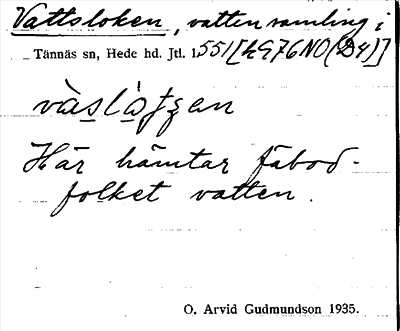 Vattsloken, vattensamling i
Tännäs sn, Hede hd. Jtl. 1551[49G76NO(D4)]
Här hämtar fäbod-
folket vatten.
O. Arvid Gudmundson 1935.